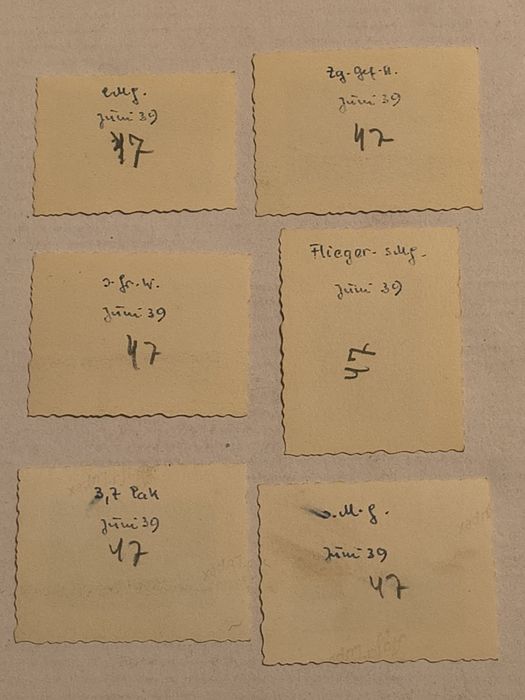 lMg.
Juni 39
47
Zg. Gef. St.
Juni 39
47
s. Gr. W.
Juni 39
47
Flieger - sMg.
Juni 39
47
3,7 Pak
Juni 39
47
s. M. G.
Juni 39
47